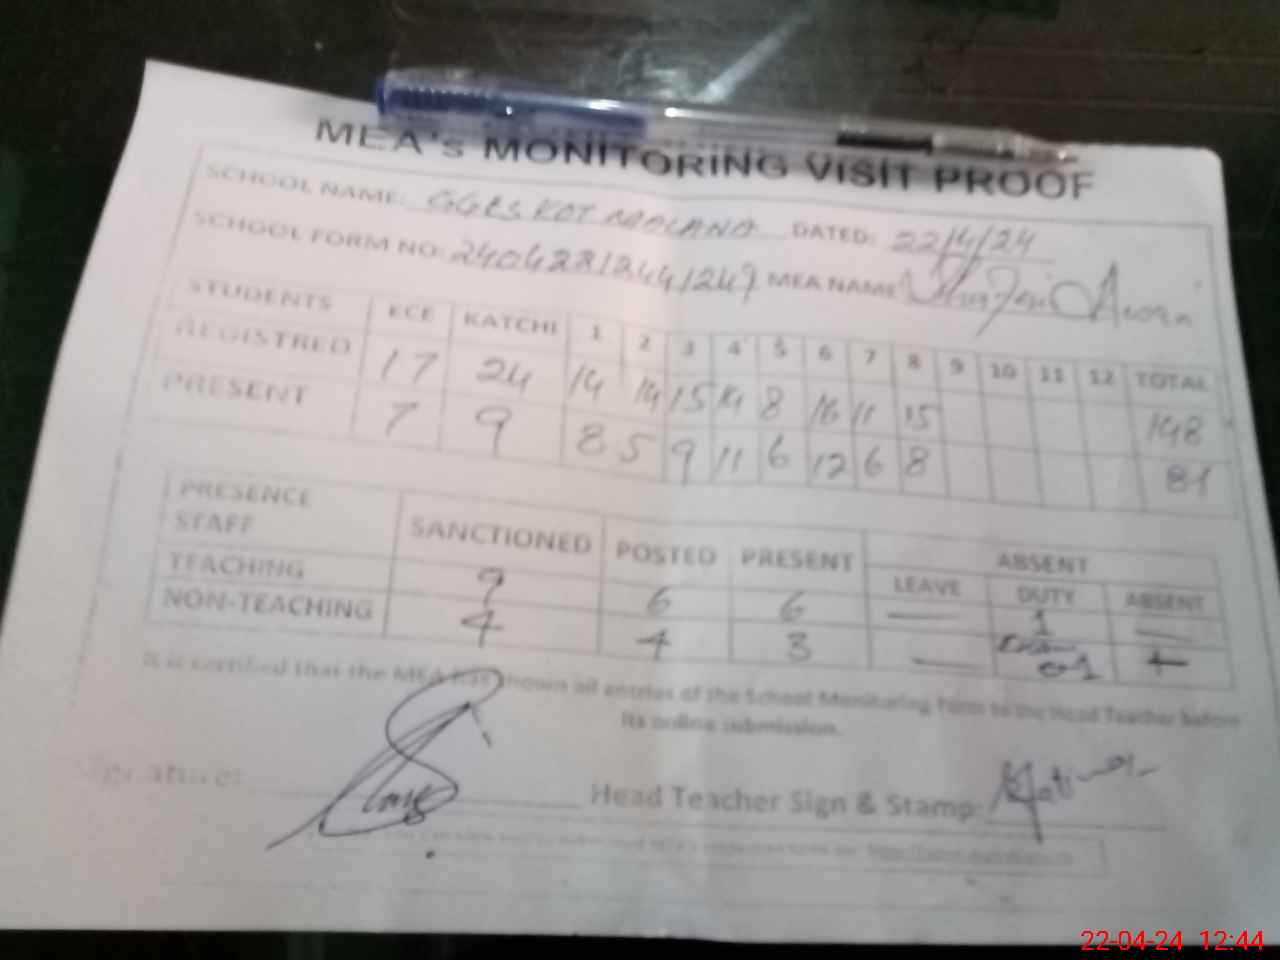 MEA's MONITORING VISIT PROOF
SCHOOL NAME: GGES KOT DATED: 22/4/24
SCHOOL FORM NO: 2404221244/249 MEA NAME Awan
STUDENTS ECE KATCHI 1 2 3 4 5 6 7 8 9 10 11 12 TOTAL
REGISTRED 17 24 14 14 15 14 8 16 11 15 148
PRESENT 7 9 8 5 9 11 6 12 6 8 81
PRESENCE STAFF SANCTIONED POSTED PRESENT ABSENT
LEAVE DUTY ABSENT
TEACHING 9 6 6 — 1 —
NON-TEACHING 4 4 3 — 01
It is certified that the MEA has shown all entries of the School Monitoring Form to the Head Teacher before
its online submission.
Signature: Head Teacher Sign & Stamp:
22-04-24 12:44